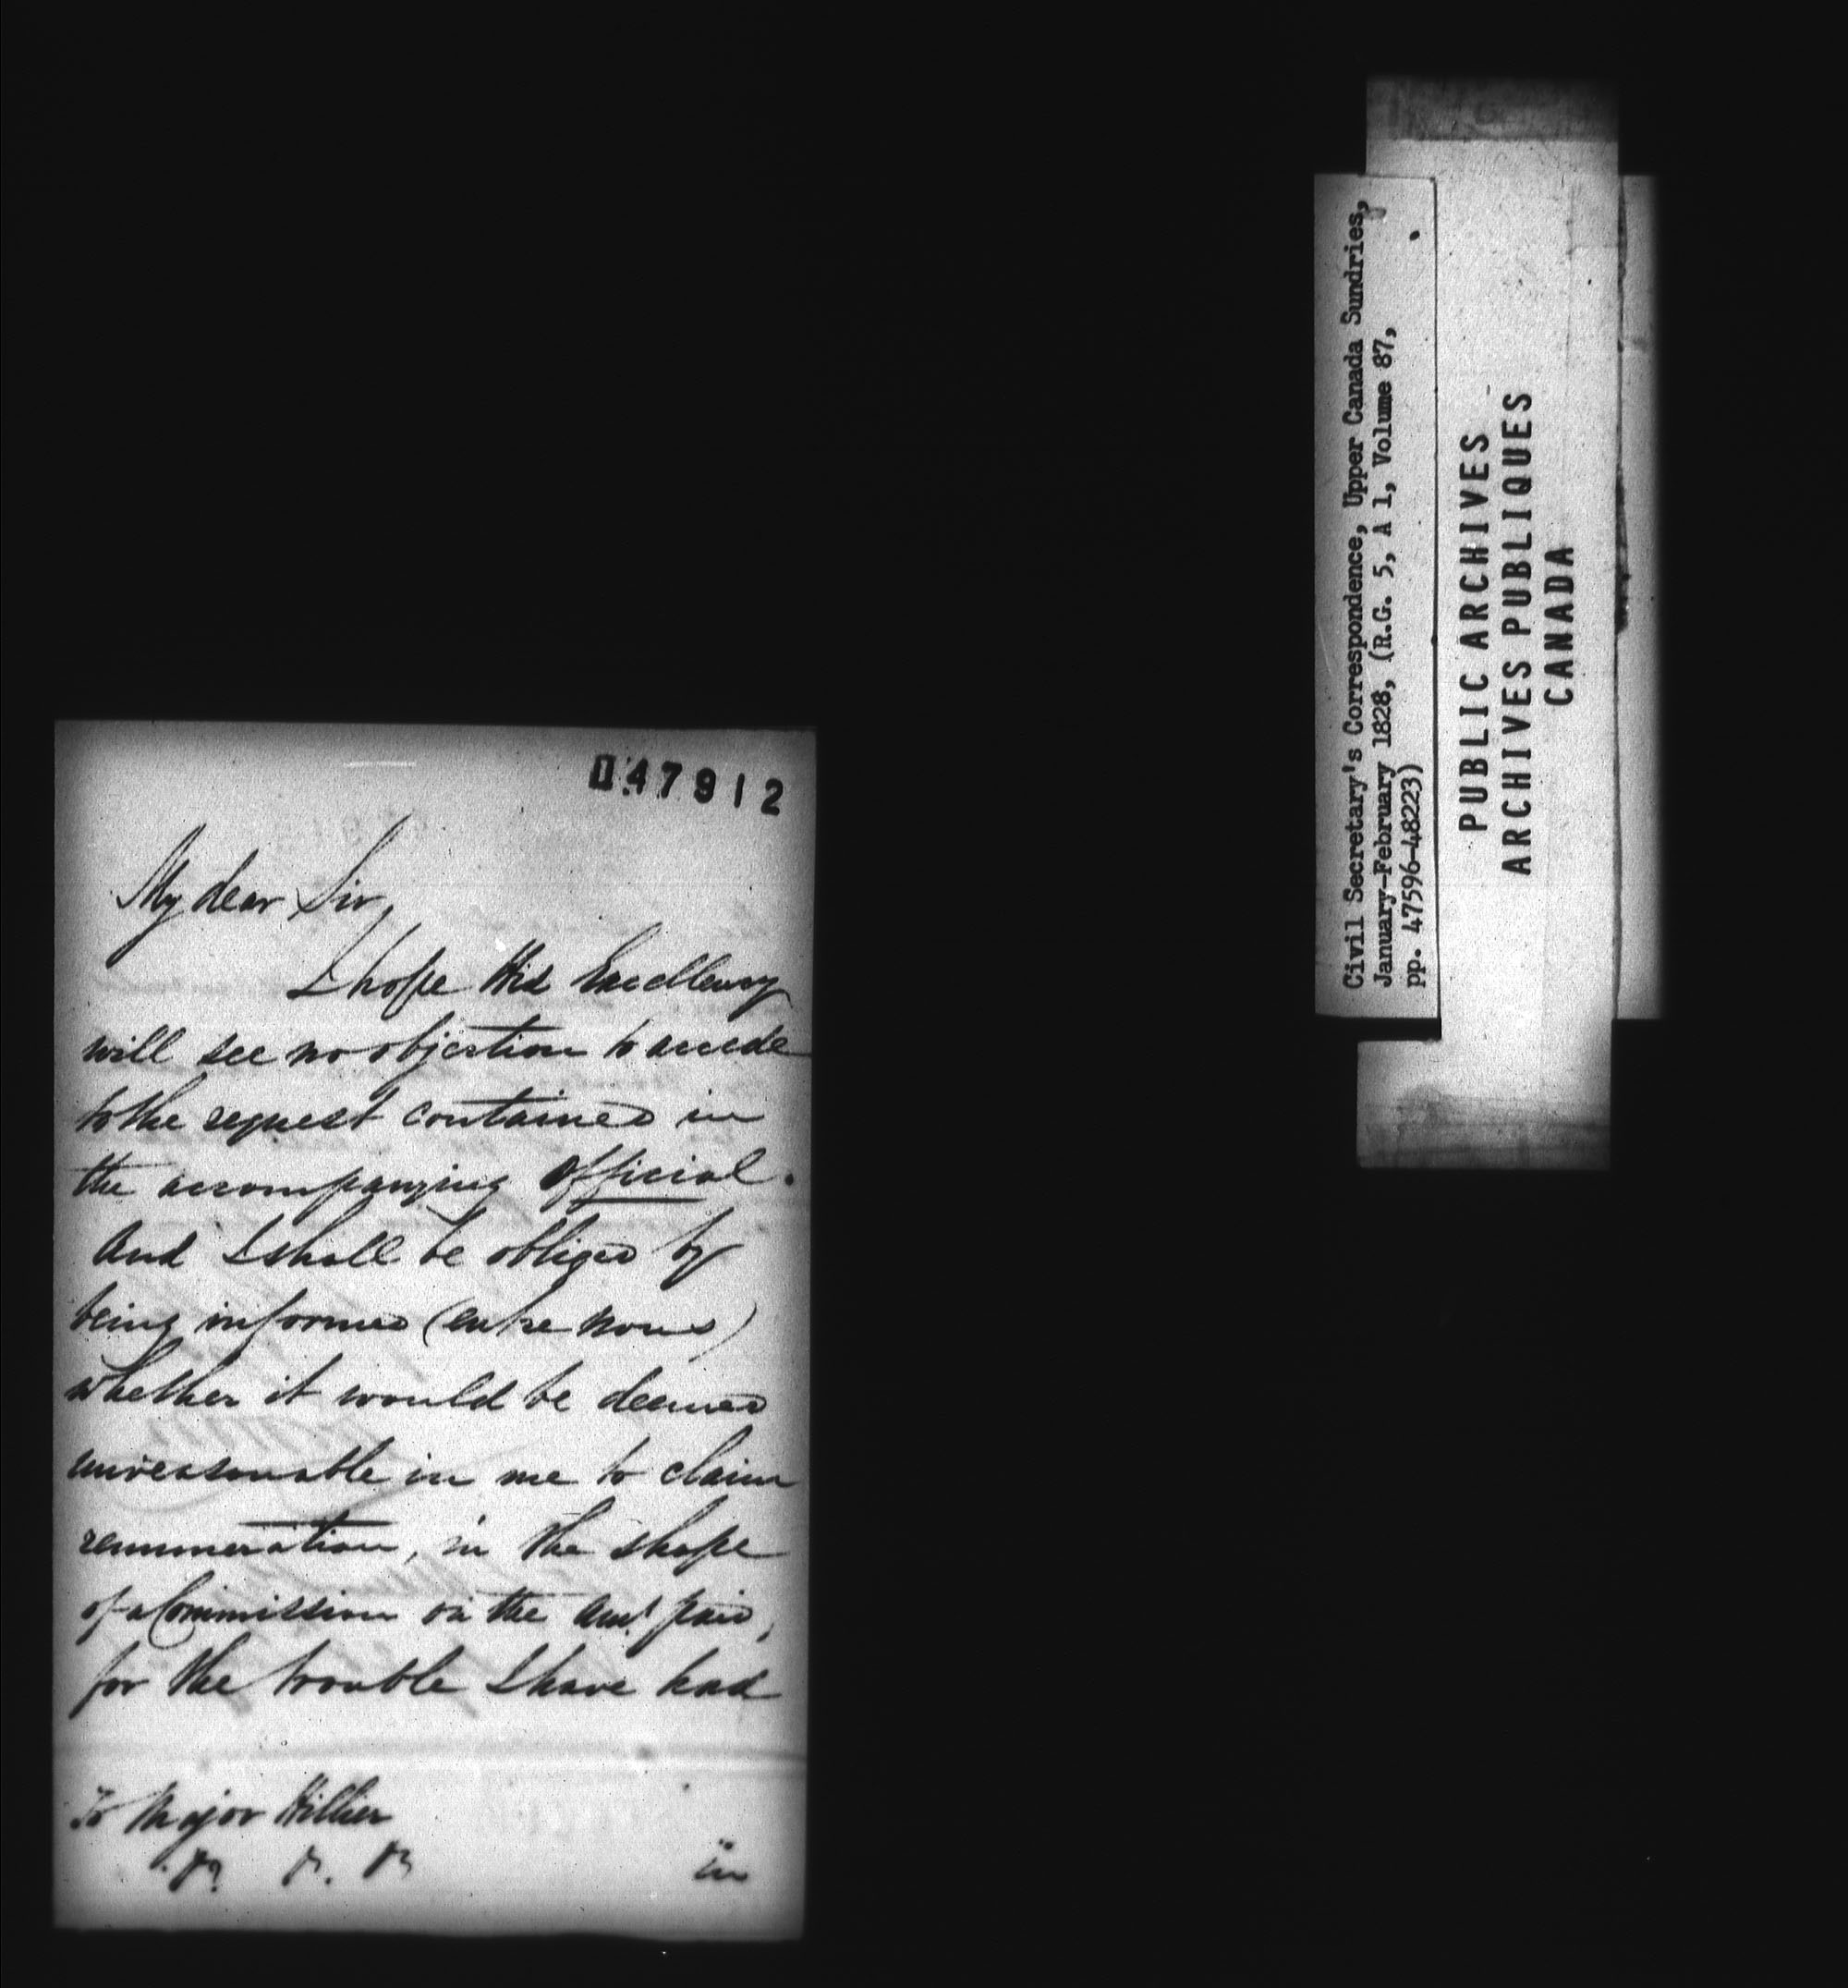 47912
My dear Sir,
I hope His Excellency
will see no objection to accede
to the request contained in
the accompanying Official.
And I shall be obliged by
being informed (entre nous)
whether it would be deemed
unreasonable in me to claim
remuneration, in the shape
of a Commission on the amt. paid,
for the trouble I have had
To Major Hillier
in
Civil Secretary's Correspondence, Upper Canada Sundries,
January-February 1828, (R.G. 5, A 1, Volume 87,
pp. 47596-48223)
PUBLIC ARCHIVES
ARCHIVES PUBLIQUES
CANADA